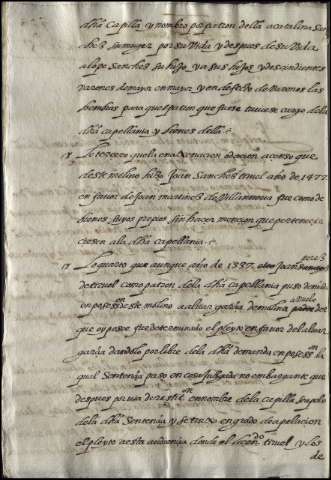 dha Capilla y nombro por patron della a catalina San
chez su muger por su vida y despues de su vida
a lope sanchez su hijo, y a sus hijos y descendientes
varones de mayor en mayor y en defecto de varones las
hembras para que el patron que fuese tuviese cargo de la
dha capellania y bienes della
18 Lo tercero que la enagenacion o dacion a censo que
deste molino hizo Joan Sanchez truel año de 1477
en favor de Joan martinez de Villanueva fue como de
bienes suyos propios sin hacer mencion que pertenecie
chesen a la dha capellania
19 Lo quarto que aunque año de 1537
de truel como patron de la dha capellania puso demanda
en posesion deste molino a alvar garcia de molina abuelo
que o y posee fue determinado el pleyto en favor del alvar
garcia dandolo por libre de la dha demanda en posesion la
qual sentencia paso en cosa juzgada no embargante que
despues por via de restituon en nombre de la capilla suplico
de la dha sentencia y se truxo en grado de apelacion
el pleyto a esta audiencia donde el licendo truel y los
de